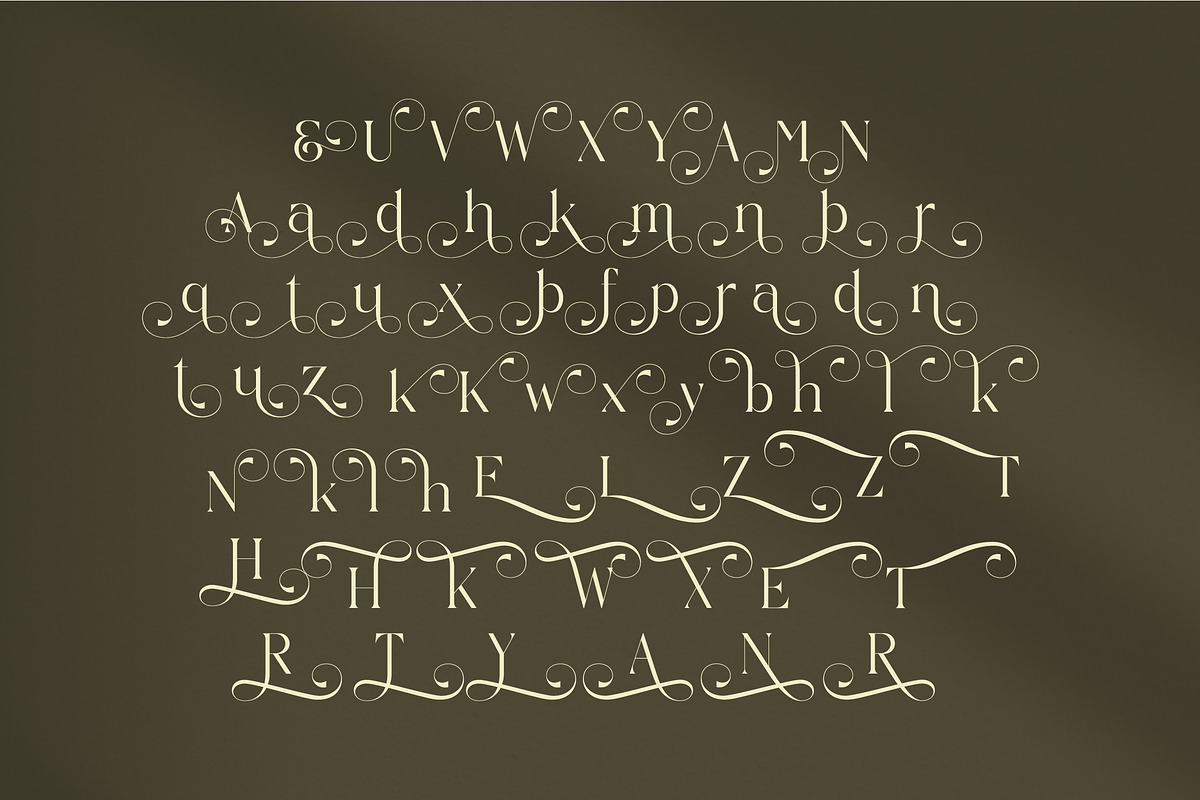 & U V W X Y A M N
A a d h k m n b r
q t u x b f p r a d n
t u z k K w x y b h l k
N k l h E L Z Z T
H H K W X E T
R T Y A N R